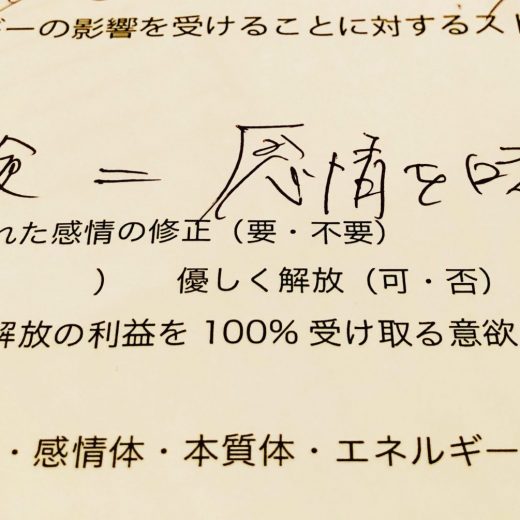 ギーの影響を受けることに対するスト
= 感情を味
れた感情の修正（要・不要）
） 優しく解放（可・否）
解放の利益を 100% 受け取る意欲
・感情体・本質体・エネルギー